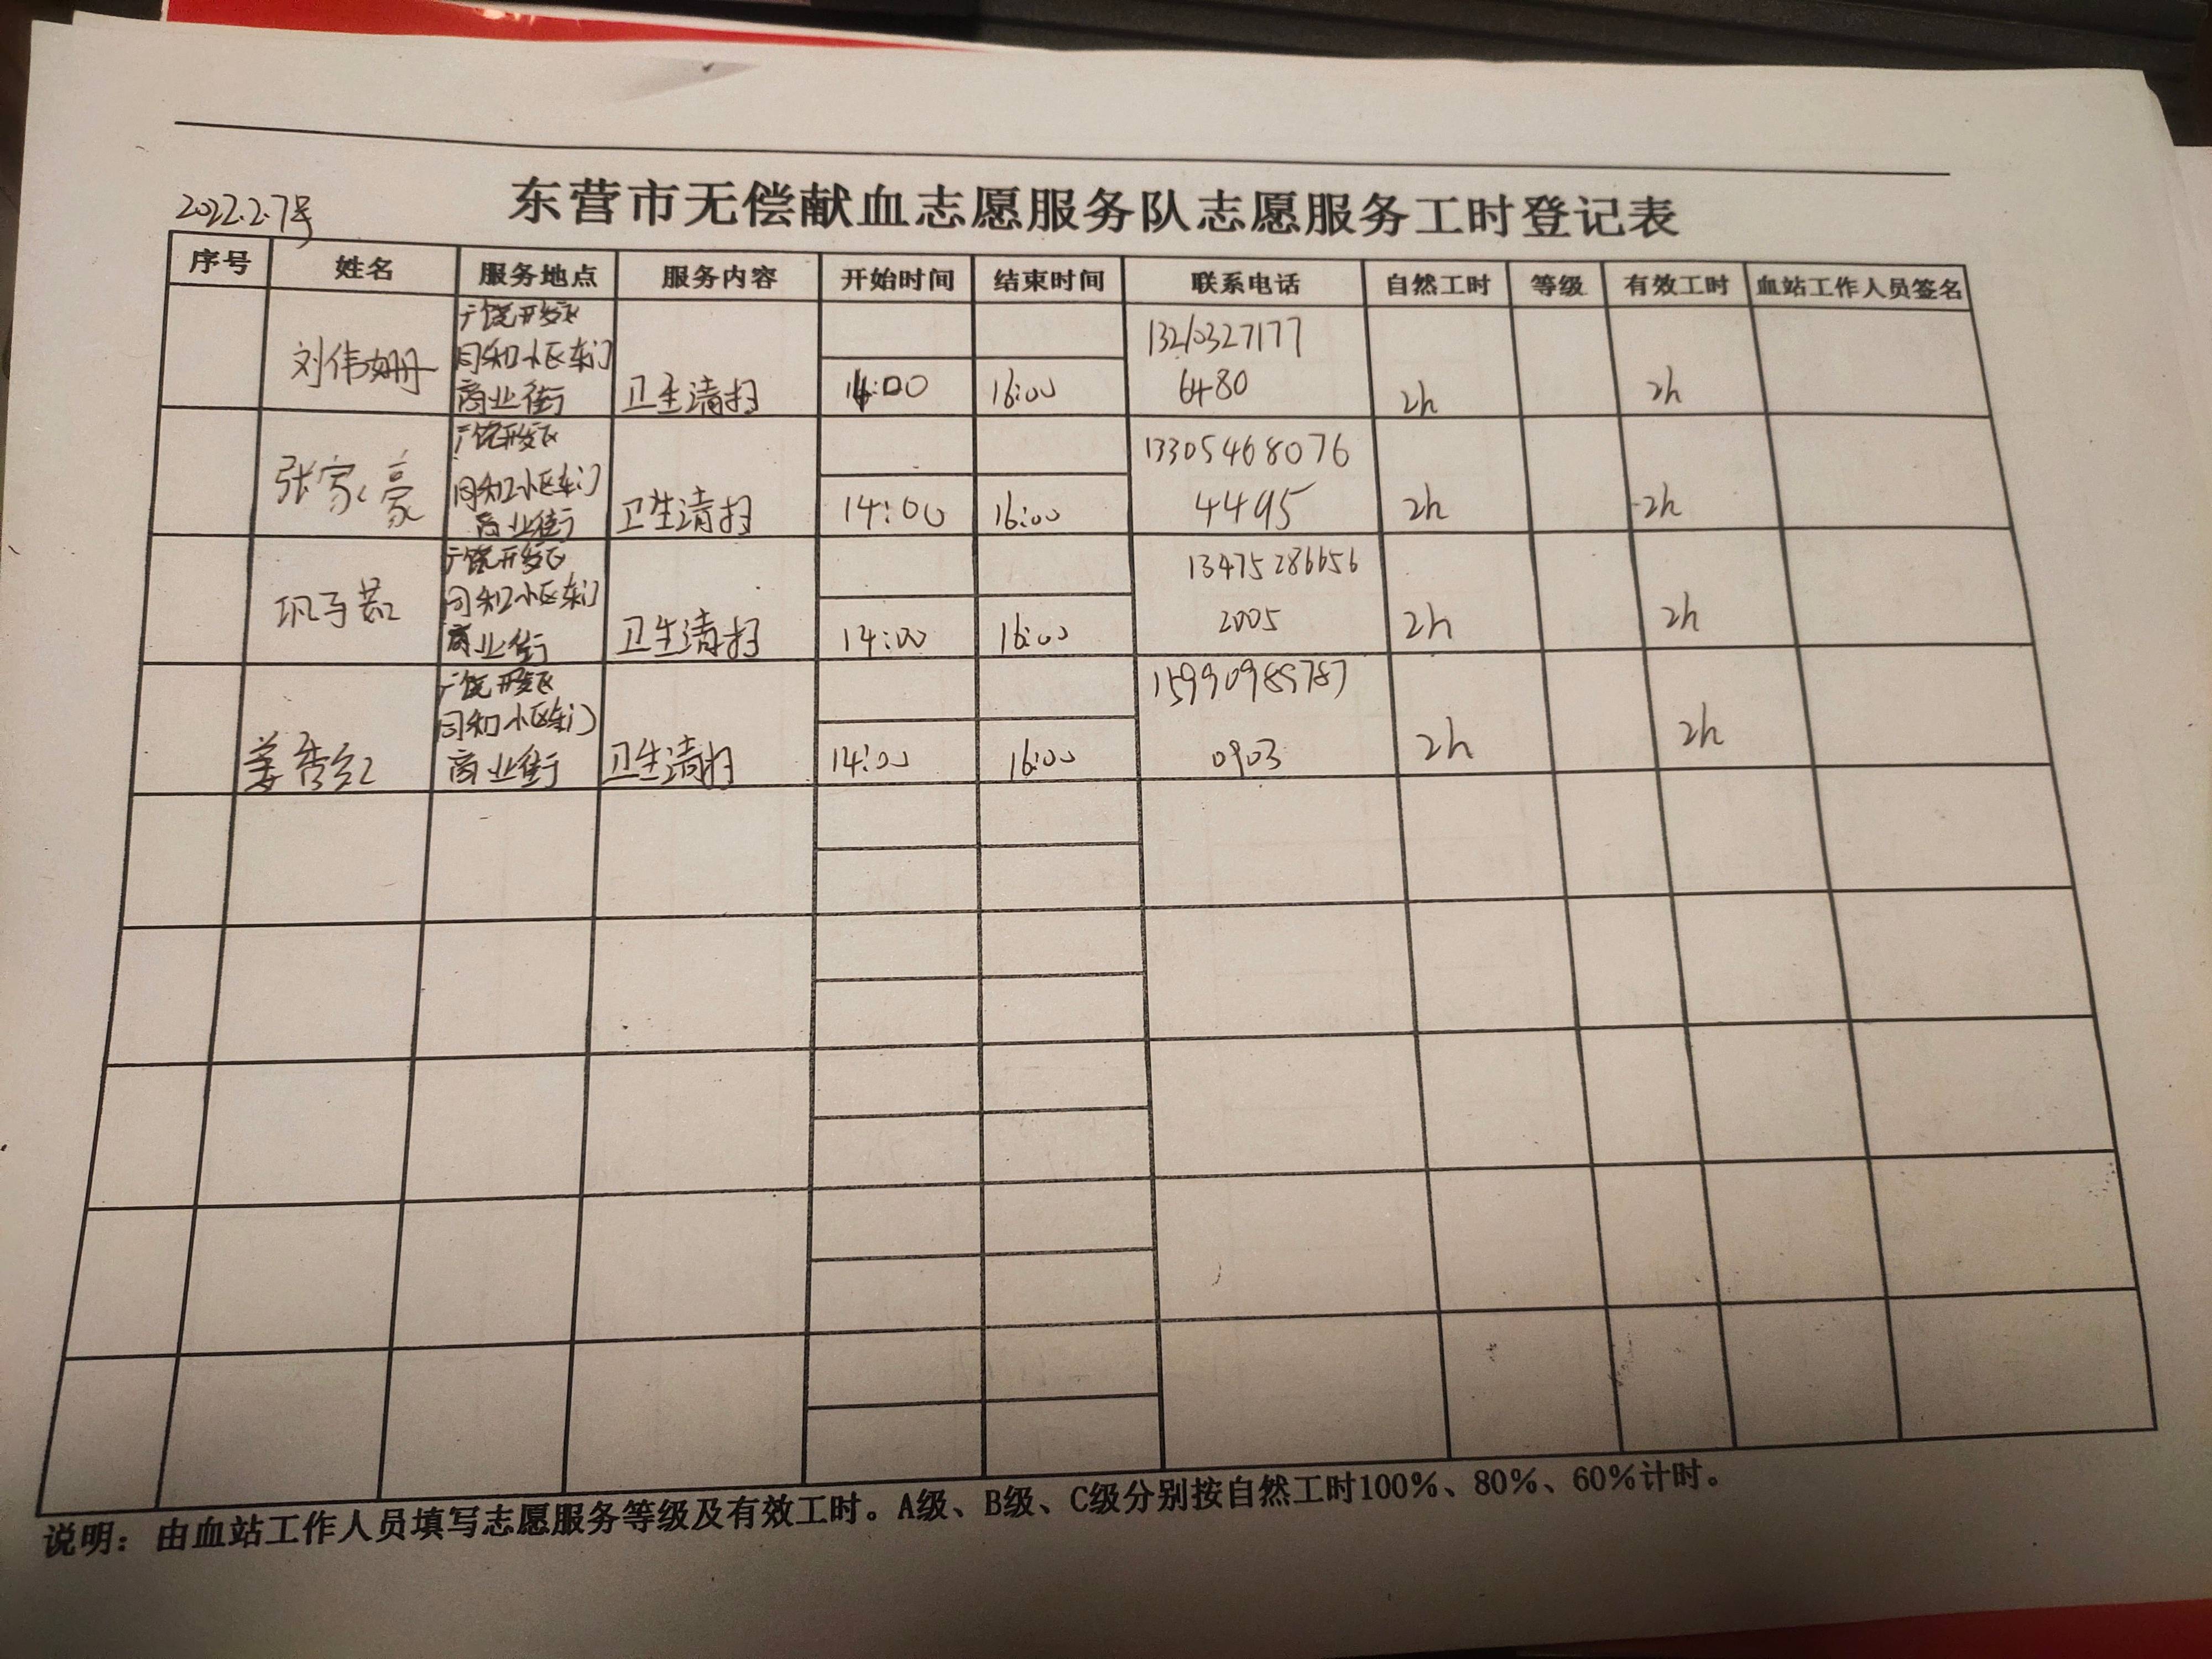 2022.2.7号
东营市无偿献血志愿服务队志愿服务工时登记表
序号 姓名 服务地点 服务内容 开始时间 结束时间 联系电话 自然工时 等级 有效工时 血站工作人员签名
广饶开发区
同和小区东门 13210327177
刘伟姗 商业街 卫生清扫 14:00 16:00 6480 2h 2h
广饶开发区 13305468076
张家豪 同和小区东门
商业街 卫生清扫 14:00 16:00 4495 2h 2h
广饶开发区 13475286656
巩子茹 同和小区东门
商业街 卫生清扫 14:00 16:00 2005 2h 2h
广饶开发区 15990989787
同和小区东门
姜秀红 商业街 卫生清扫 14:00 16:00 0903 2h 2h
说明：由血站工作人员填写志愿服务等级及有效工时。A级、B级、C级分别按自然工时100%、80%、60%计时。